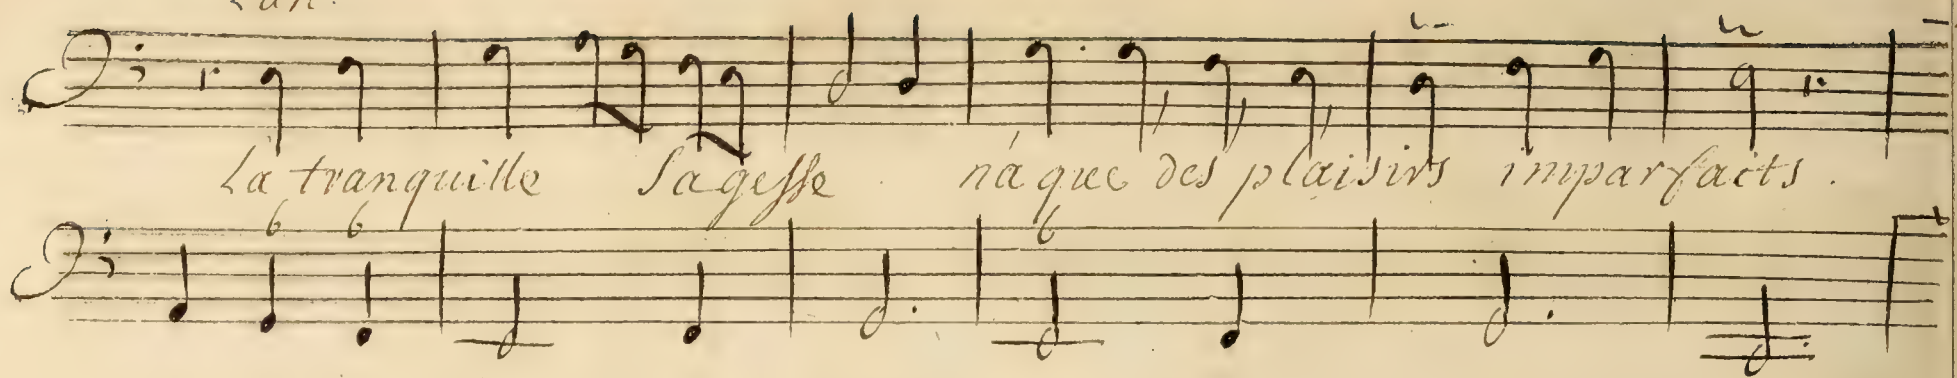 La tranquille Sagesse n'a que des plaisirs imparfaits.
6 6 6